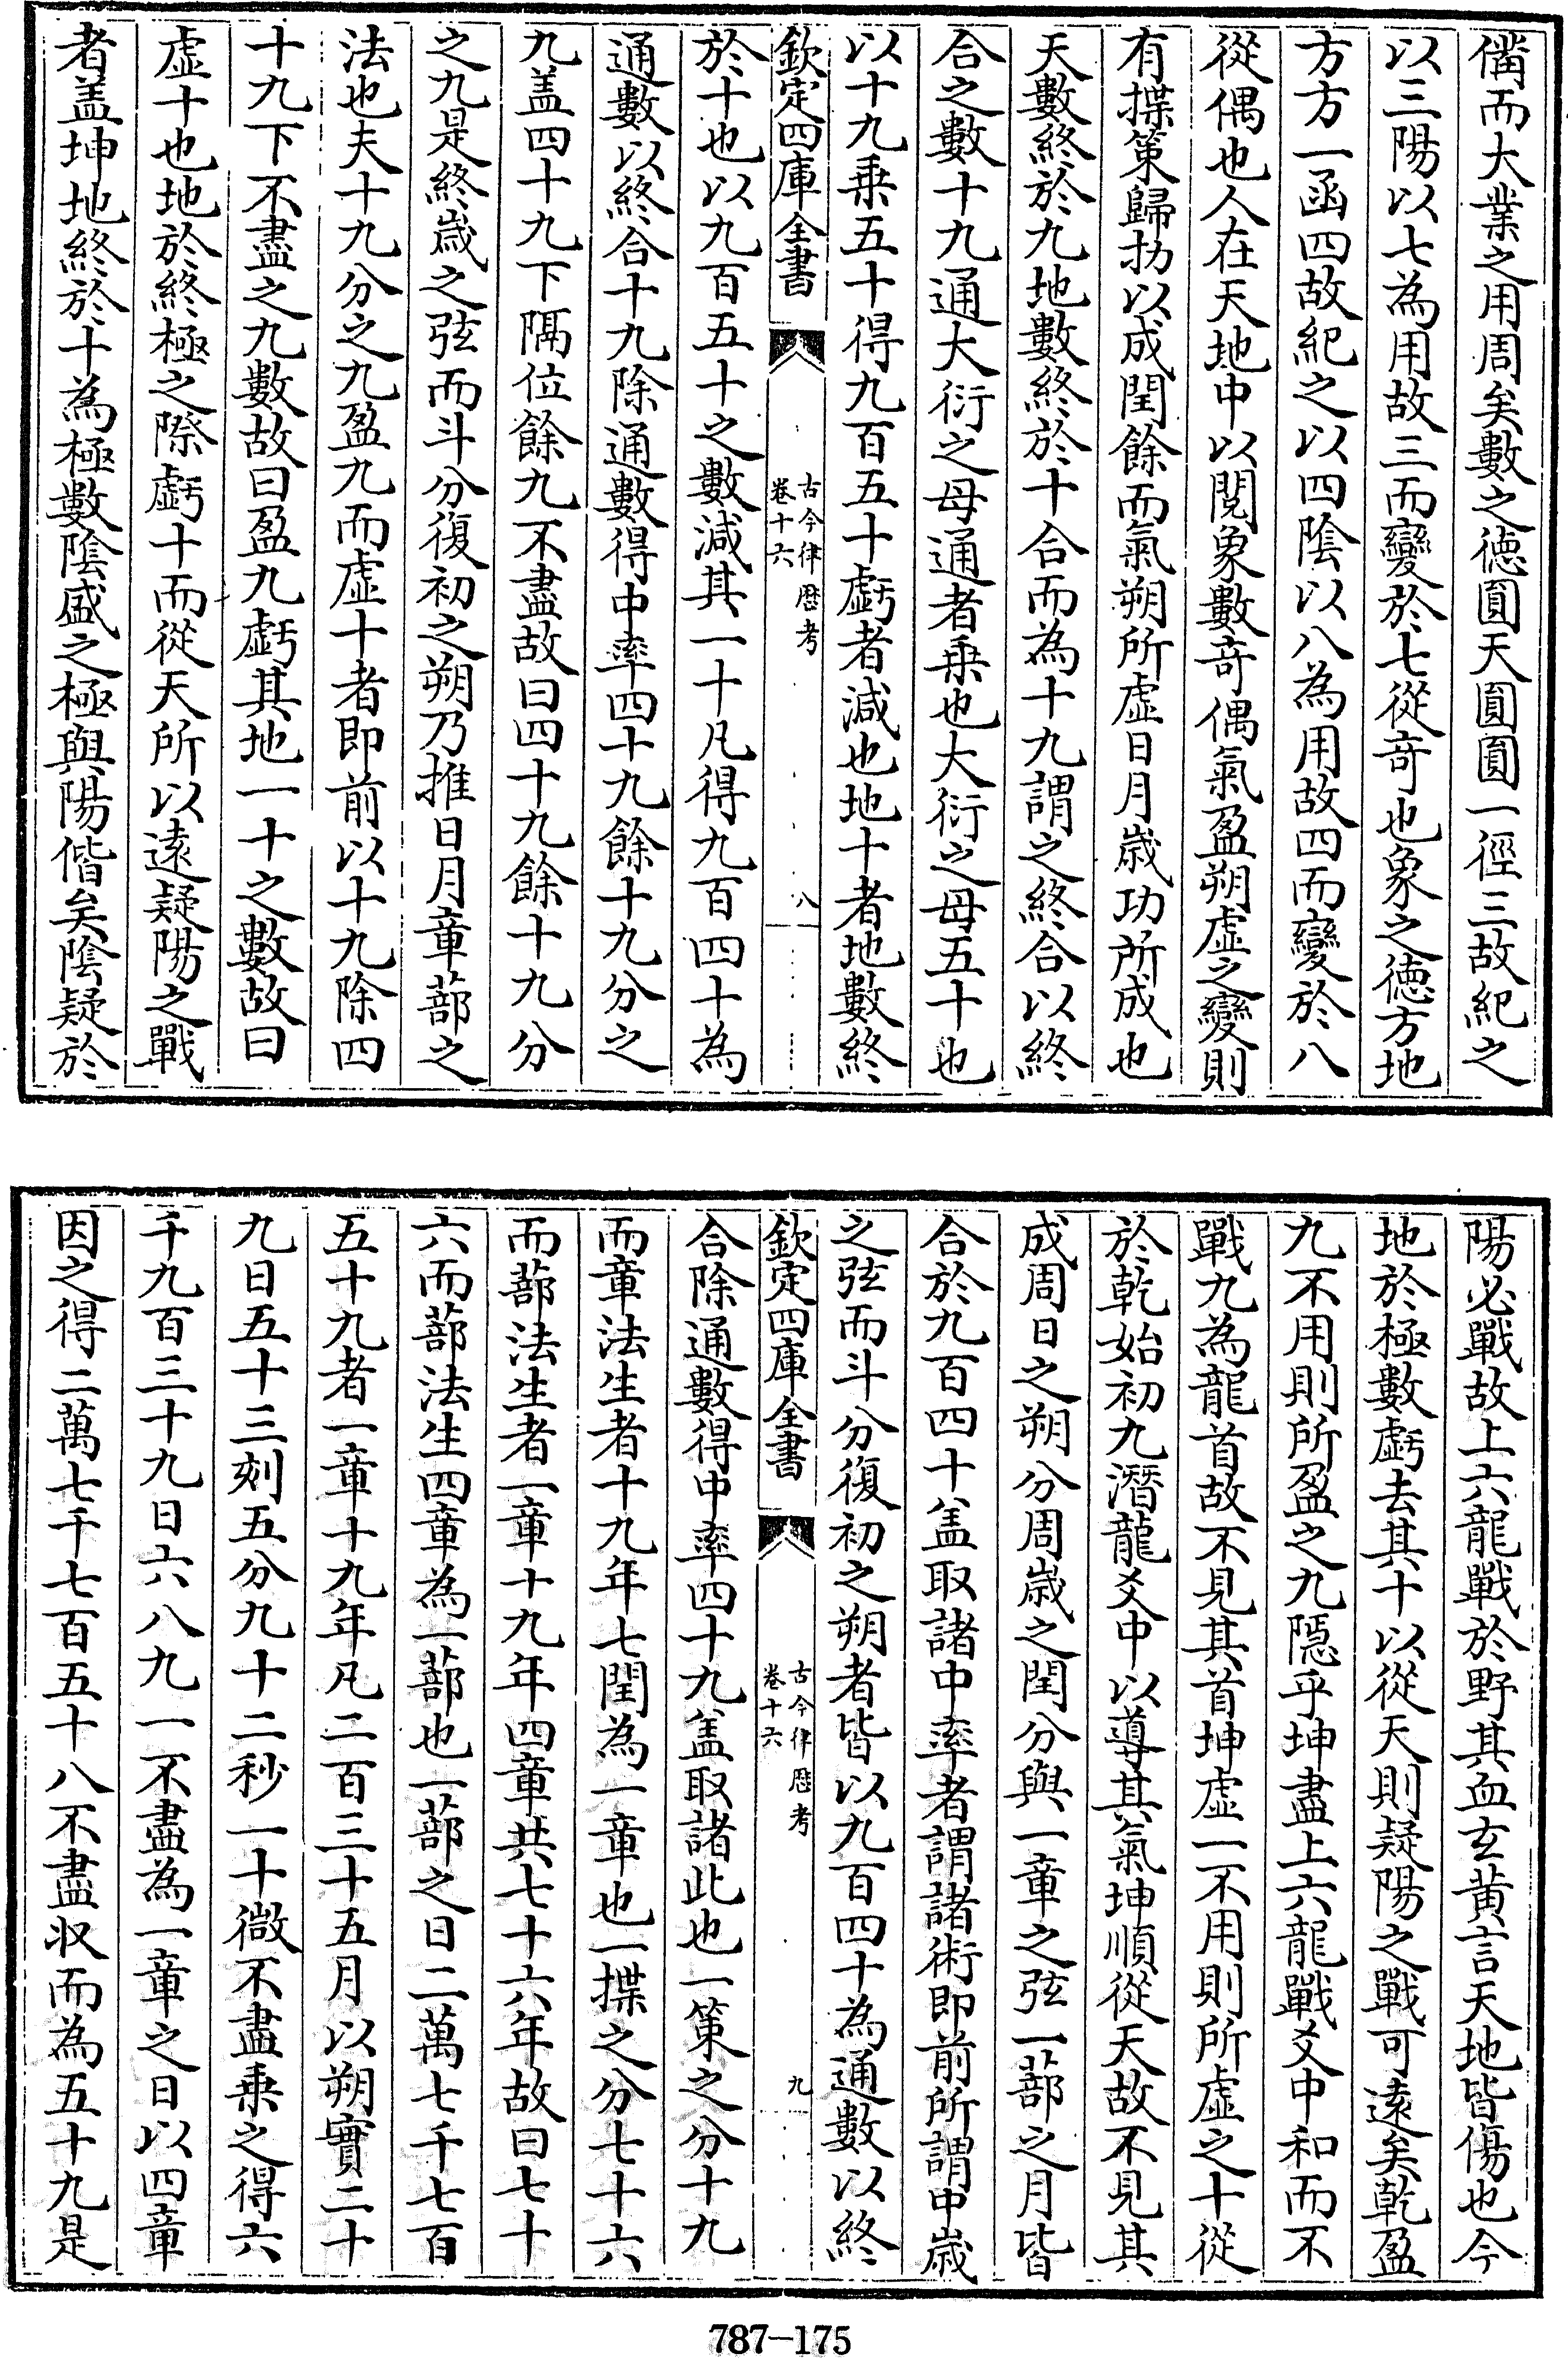 僃而大業之用周矣數之徳圓天圓圓一徑三故紀之
以三陽以七為用故三而變於七從竒也象之徳方地
方方一函四故紀之以四陰以八為用故四而變於八
從偶也人在天地中以閱象數竒偶氣盈朔虚之變則
有揲策歸扐以成閏餘而氣朔所虚日月歳功所成也
天數終於九地數終於十合而為十九謂之終合以終
合之數十九通大衍之母通者乗也大衍之母五十也
以十九乗五十得九百五十虧者減也地十者地數終
欽定四庫全書
古今律厯考
卷十六
八
於十也以九百五十之數減其一十凡得九百四十為
通數以終合十九除通數得中率四十九餘十九分之
九盖四十九下隔位餘九不盡故曰四十九餘十九分
之九是終歳之弦而斗分復初之朔乃推日月章蔀之
法也夫十九分之九盈九而虚十者即前以十九除四
十九下不盡之九數故曰盈九虧其地一十之數故曰
虚十也地於終極之際虧十而從天所以遠疑陽之戰
者盖坤地終於十為極數陰盛之極與陽偕矣陰疑於
陽必戰故上六龍戰於野其血玄黄言天地皆傷也今
地於極數虧去其十以從天則疑陽之戰可遠矣乾盈
九不用則所盈之九隱乎坤盡上六龍戰爻中和而不
戰九為龍首故不見其首坤虚一不用則所虚之十從
於乾始初九潛龍爻中以導其氣坤順從天故不見其
成周日之朔分周歳之閏分與一章之弦一蔀之月皆
合於九百四十盖取諸中率者謂諸術即前所謂中歳
之弦而斗分復初之朔者皆以九百四十為通數以終
欽定四庫全書
古今律厯考
卷十六
九
合除通數得中率四十九盖取諸此也一策之分十九
而章法生者十九年七閏為一章也一揲之分七十六
而蔀法生者一章十九年四章共七十六年故曰七十
六而蔀法生四章為一蔀也一蔀之日二萬七千七百
五十九者一章十九年凡二百三十五月以朔實二十
九日五十三刻五分九十二秒一十微不盡乗之得六
千九百三十九日六八九一不盡為一章之日以四章
因之得二萬七千七百五十八不盡収而為五十九是
787-175